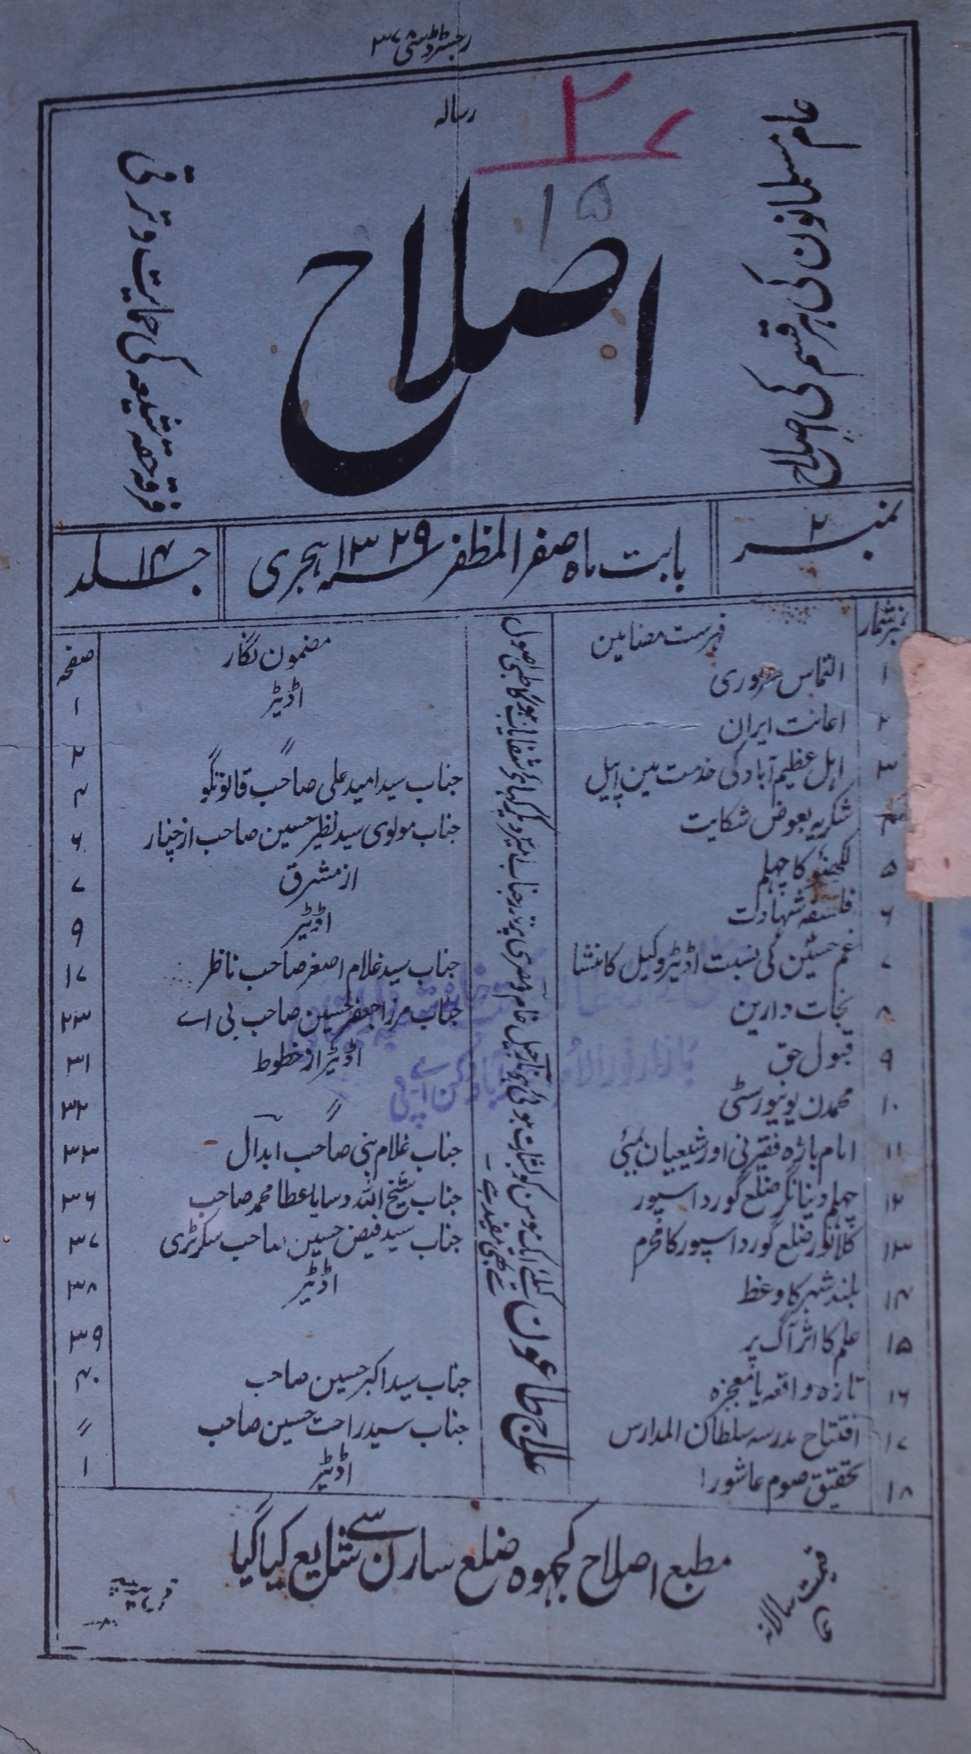 رجسٹرڈ نمبر ۳۷
رسالہ
۲۷
۱۵
عام مسلمانوں کی ہر قسم کی اصلاح
اصلاح
فرقہ حقہ شیعہ کی حمایت و ترقی
نمبر ۲
بابت ماہ صفر المظفر سنہ ۱۳۲۹ ہجری
جلد ۱۴
نمبر شمار فہرست مضامین مضمون نگار صفحہ
۱ التماس ضروری اڈیٹر ۱
۲ اعانت ایران " ۲
۳ اہل عظیم آباد کی خدمت مین اپیل جناب سید امید علی صاحب قانونگو ۴
۴ شکریہ بعوض شکایت جناب مولوی سید نظیر حسین صاحب از چنار ۶
۵ لکھنؤ کا چہلم از مشرق ۷
۶ فلسفہ شہادت اڈیٹر ۹
۷ غم حسین کی نسبت اڈیٹر وکیل کا منشا جناب سید غلام اصغر صاحب ناظر ۱۷
۸ نجات دارین جناب مرزا جعفر حسین صاحب بی اے ۲۳
۹ قبول حق اڈیٹر از خطوط ۳۱
۱۰ محمڈن یونیورسٹی " ۳۲
۱۱ امام باڑہ فقیرنی اور شیعیان بمبئی جناب غلام نبی صاحب ابدال ۳۳
۱۲ چہلم دینانگر ضلع گورداسپور جناب شیخ اللہ دسایا عطا محمد صاحب ۳۶
۱۳ کلانور ضلع گورداسپور کا محرم جناب سید فیض حسین صاحب سکرٹری ۳۷
۱۴ بلند شہر کا وعظ اڈیٹر ۳۸
۱۵ علم کا اثر آگ پر ۳۹
۱۶ تازہ واقعہ یا معجزہ جناب سید اکبر حسین صاحب ۴۰
۱۷ افتتاح مدرسہ سلطان المدارس جناب سید راحت حسین صاحب "
۱۸ تحقیق صوم عاشورا اڈیٹر ۱
علاج طاعون
مطبع اصلاح کجھوہ ضلع سارن سے شایع کیا گیا
قیمت سالانہ